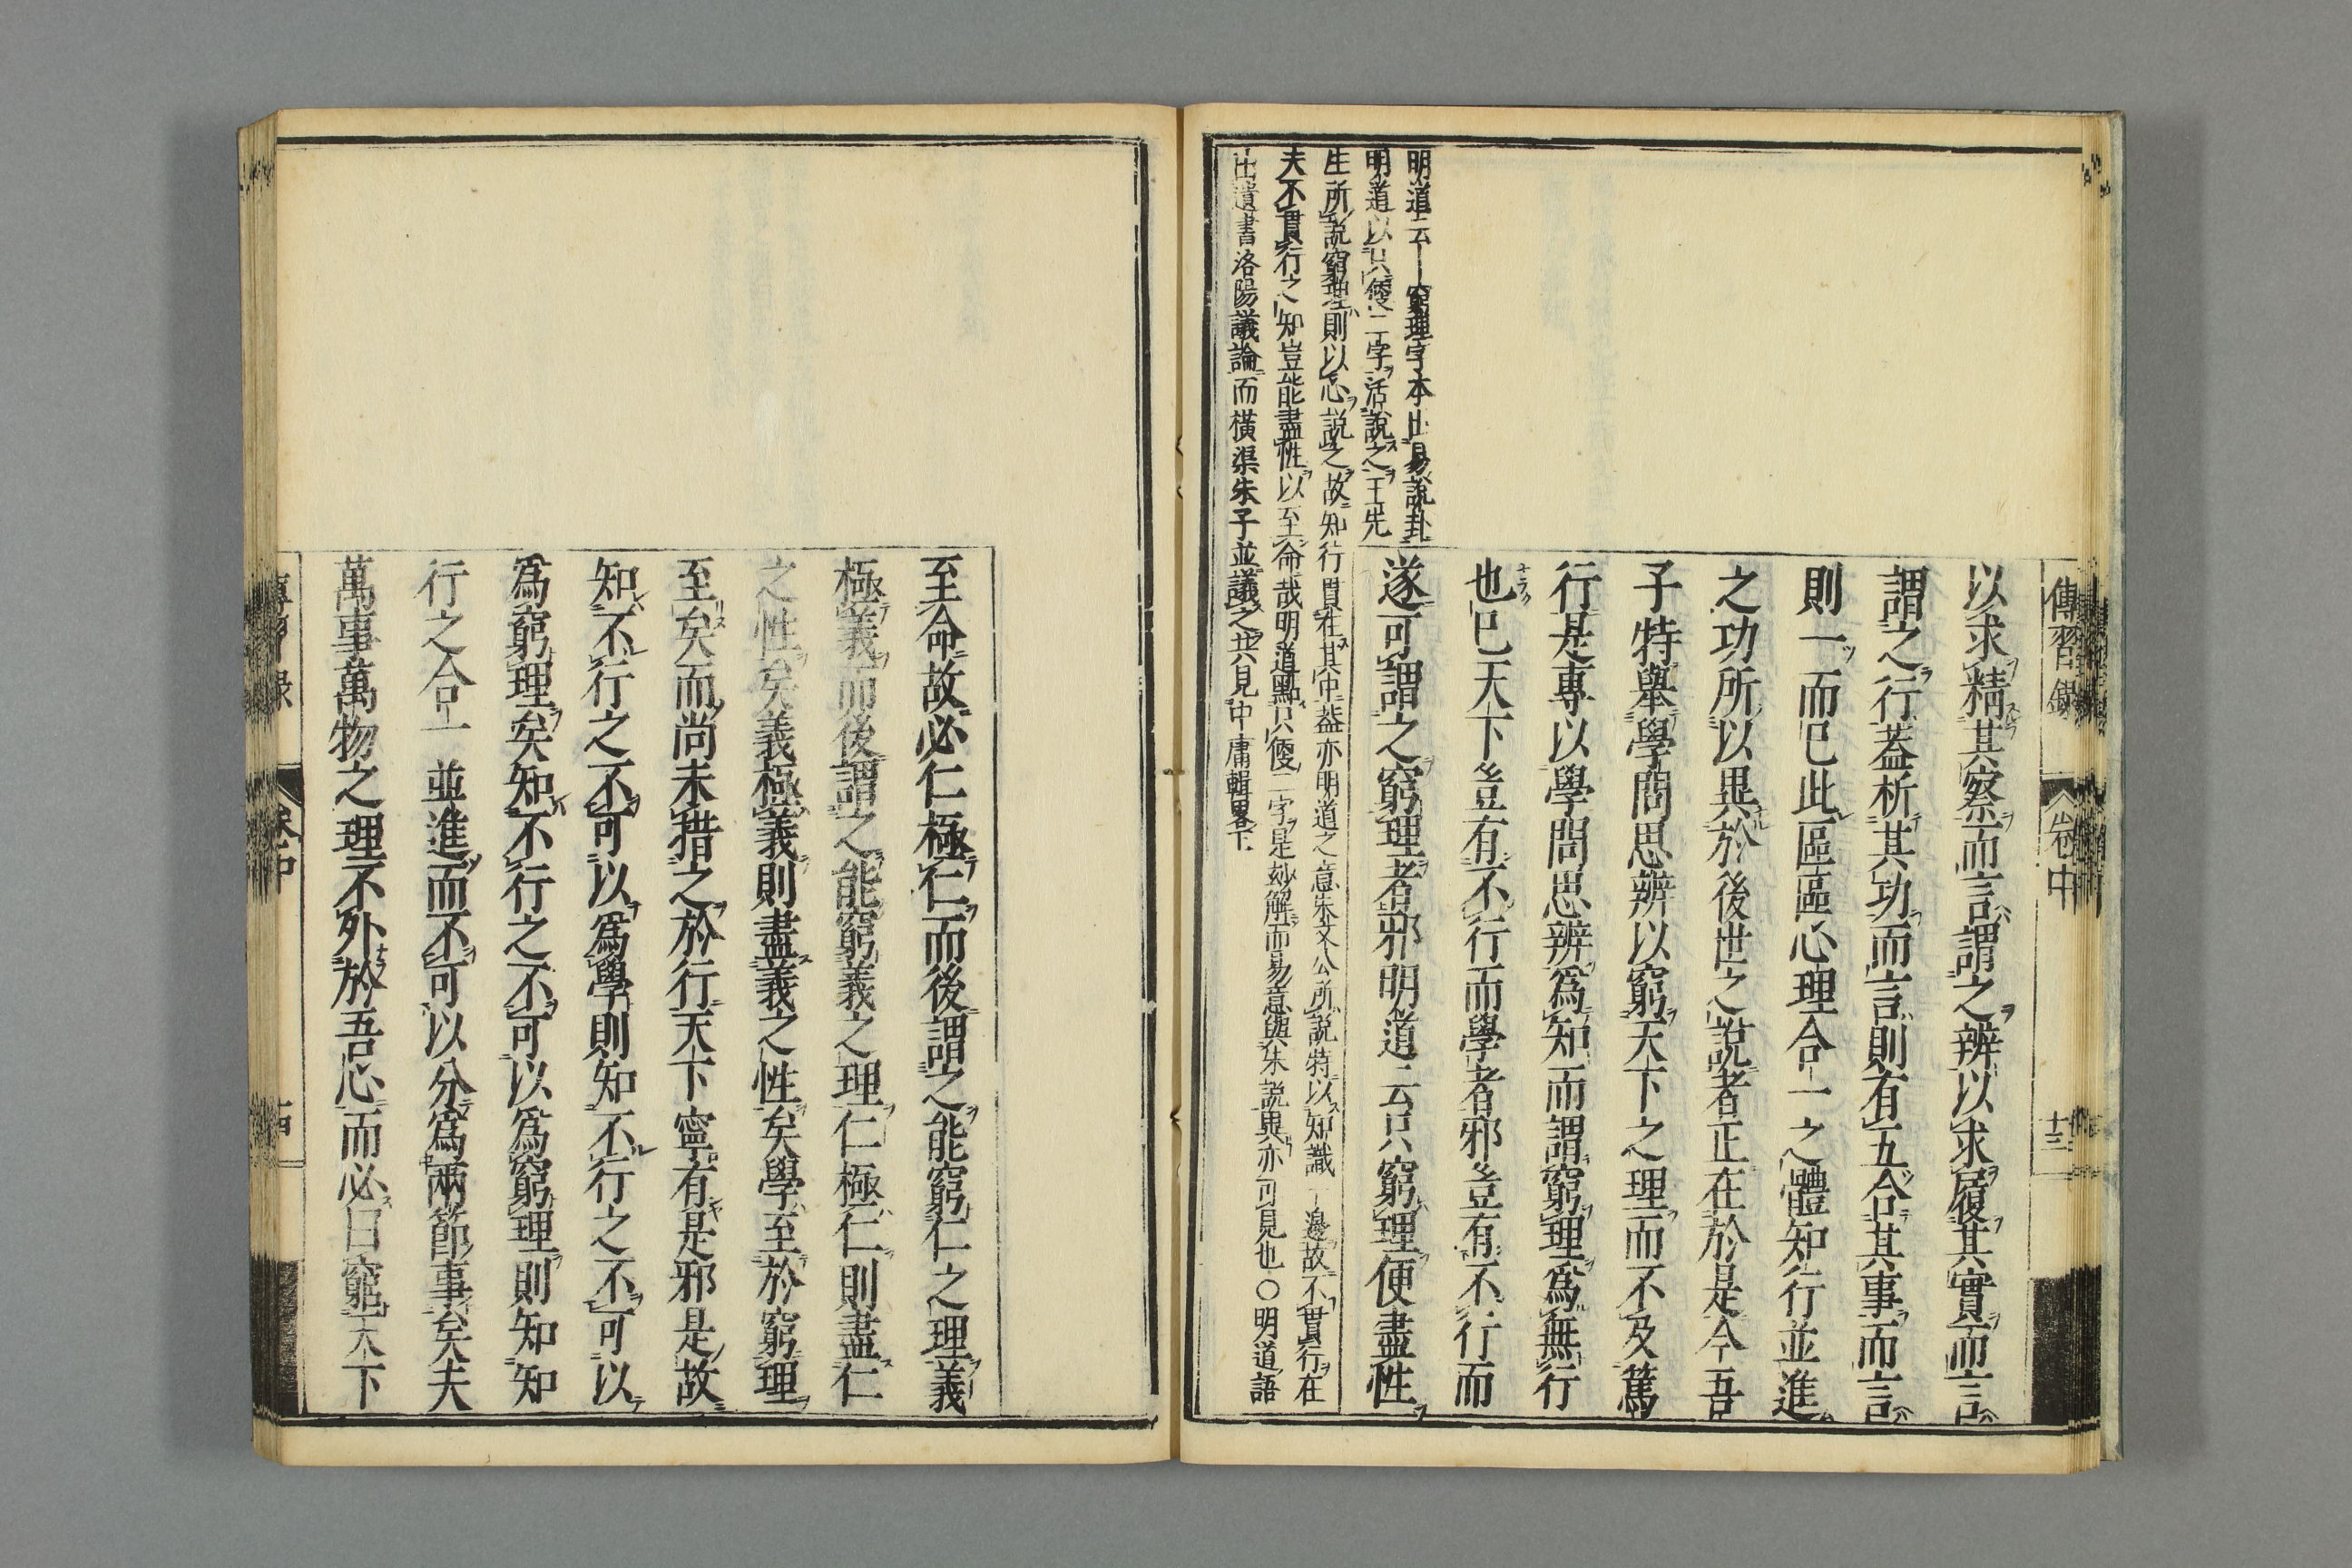 傳習錄
卷中
十三
以求精其察而言謂之辨以求履其實而言
謂之行蓋析其功而言則有五合其事而言
則一而已此區區心理合一之體知行並進
之功所以異於後世之說者正在於是今吾
子特舉學問思辨以窮天下之理而不及篤
行是專以學問思辨爲知而謂窮理爲無行
也已天下豈有不行而學者邪豈有不行而
遂可謂之窮理者邪明道云只窮理便盡性
明道云—窮理字本出易說卦
明道以只便二字活說之王先
生所說窮理則以心說之故知行貫在其中蓋亦明道之意朱文公所說特以知識一邊故不貫行在
夫不貫行之知豈能盡性以至命哉明道點只便二字是妙解而易意與朱說異亦可見也○明道語
出遺書洛陽議論而橫渠朱子並議之共見中庸輯畧下
至命故必仁極仁而後謂之能窮仁之理義
極義而後謂之能窮義之理仁極仁則盡仁
之性矣義極義則盡義之性矣學至於窮理
至矣而尚未措之於行天下寧有是邪是故
知不行之不可以爲學則知不行之不可以
爲窮理矣知不行之不可以爲窮理則知知
行之合一並進而不可以分爲兩節事矣夫
萬事萬物之理不外於吾心而必曰窮天下
傳習錄
卷中
十四